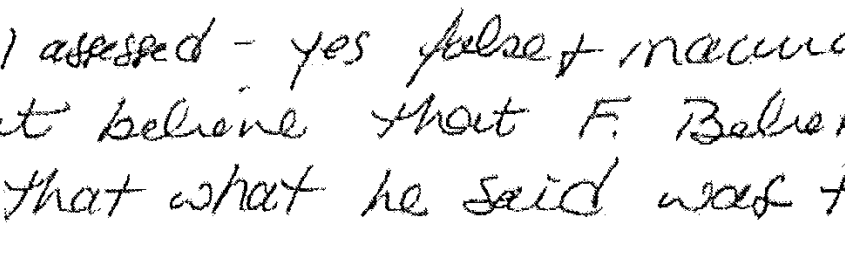 ) assessed - yes false + inaccura
t believe that F. Belie
that what he said was t